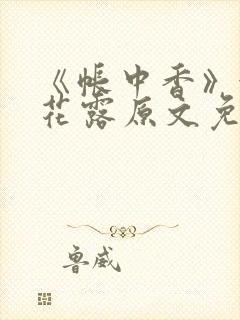 《帐中香》
花露原文免
鲁威